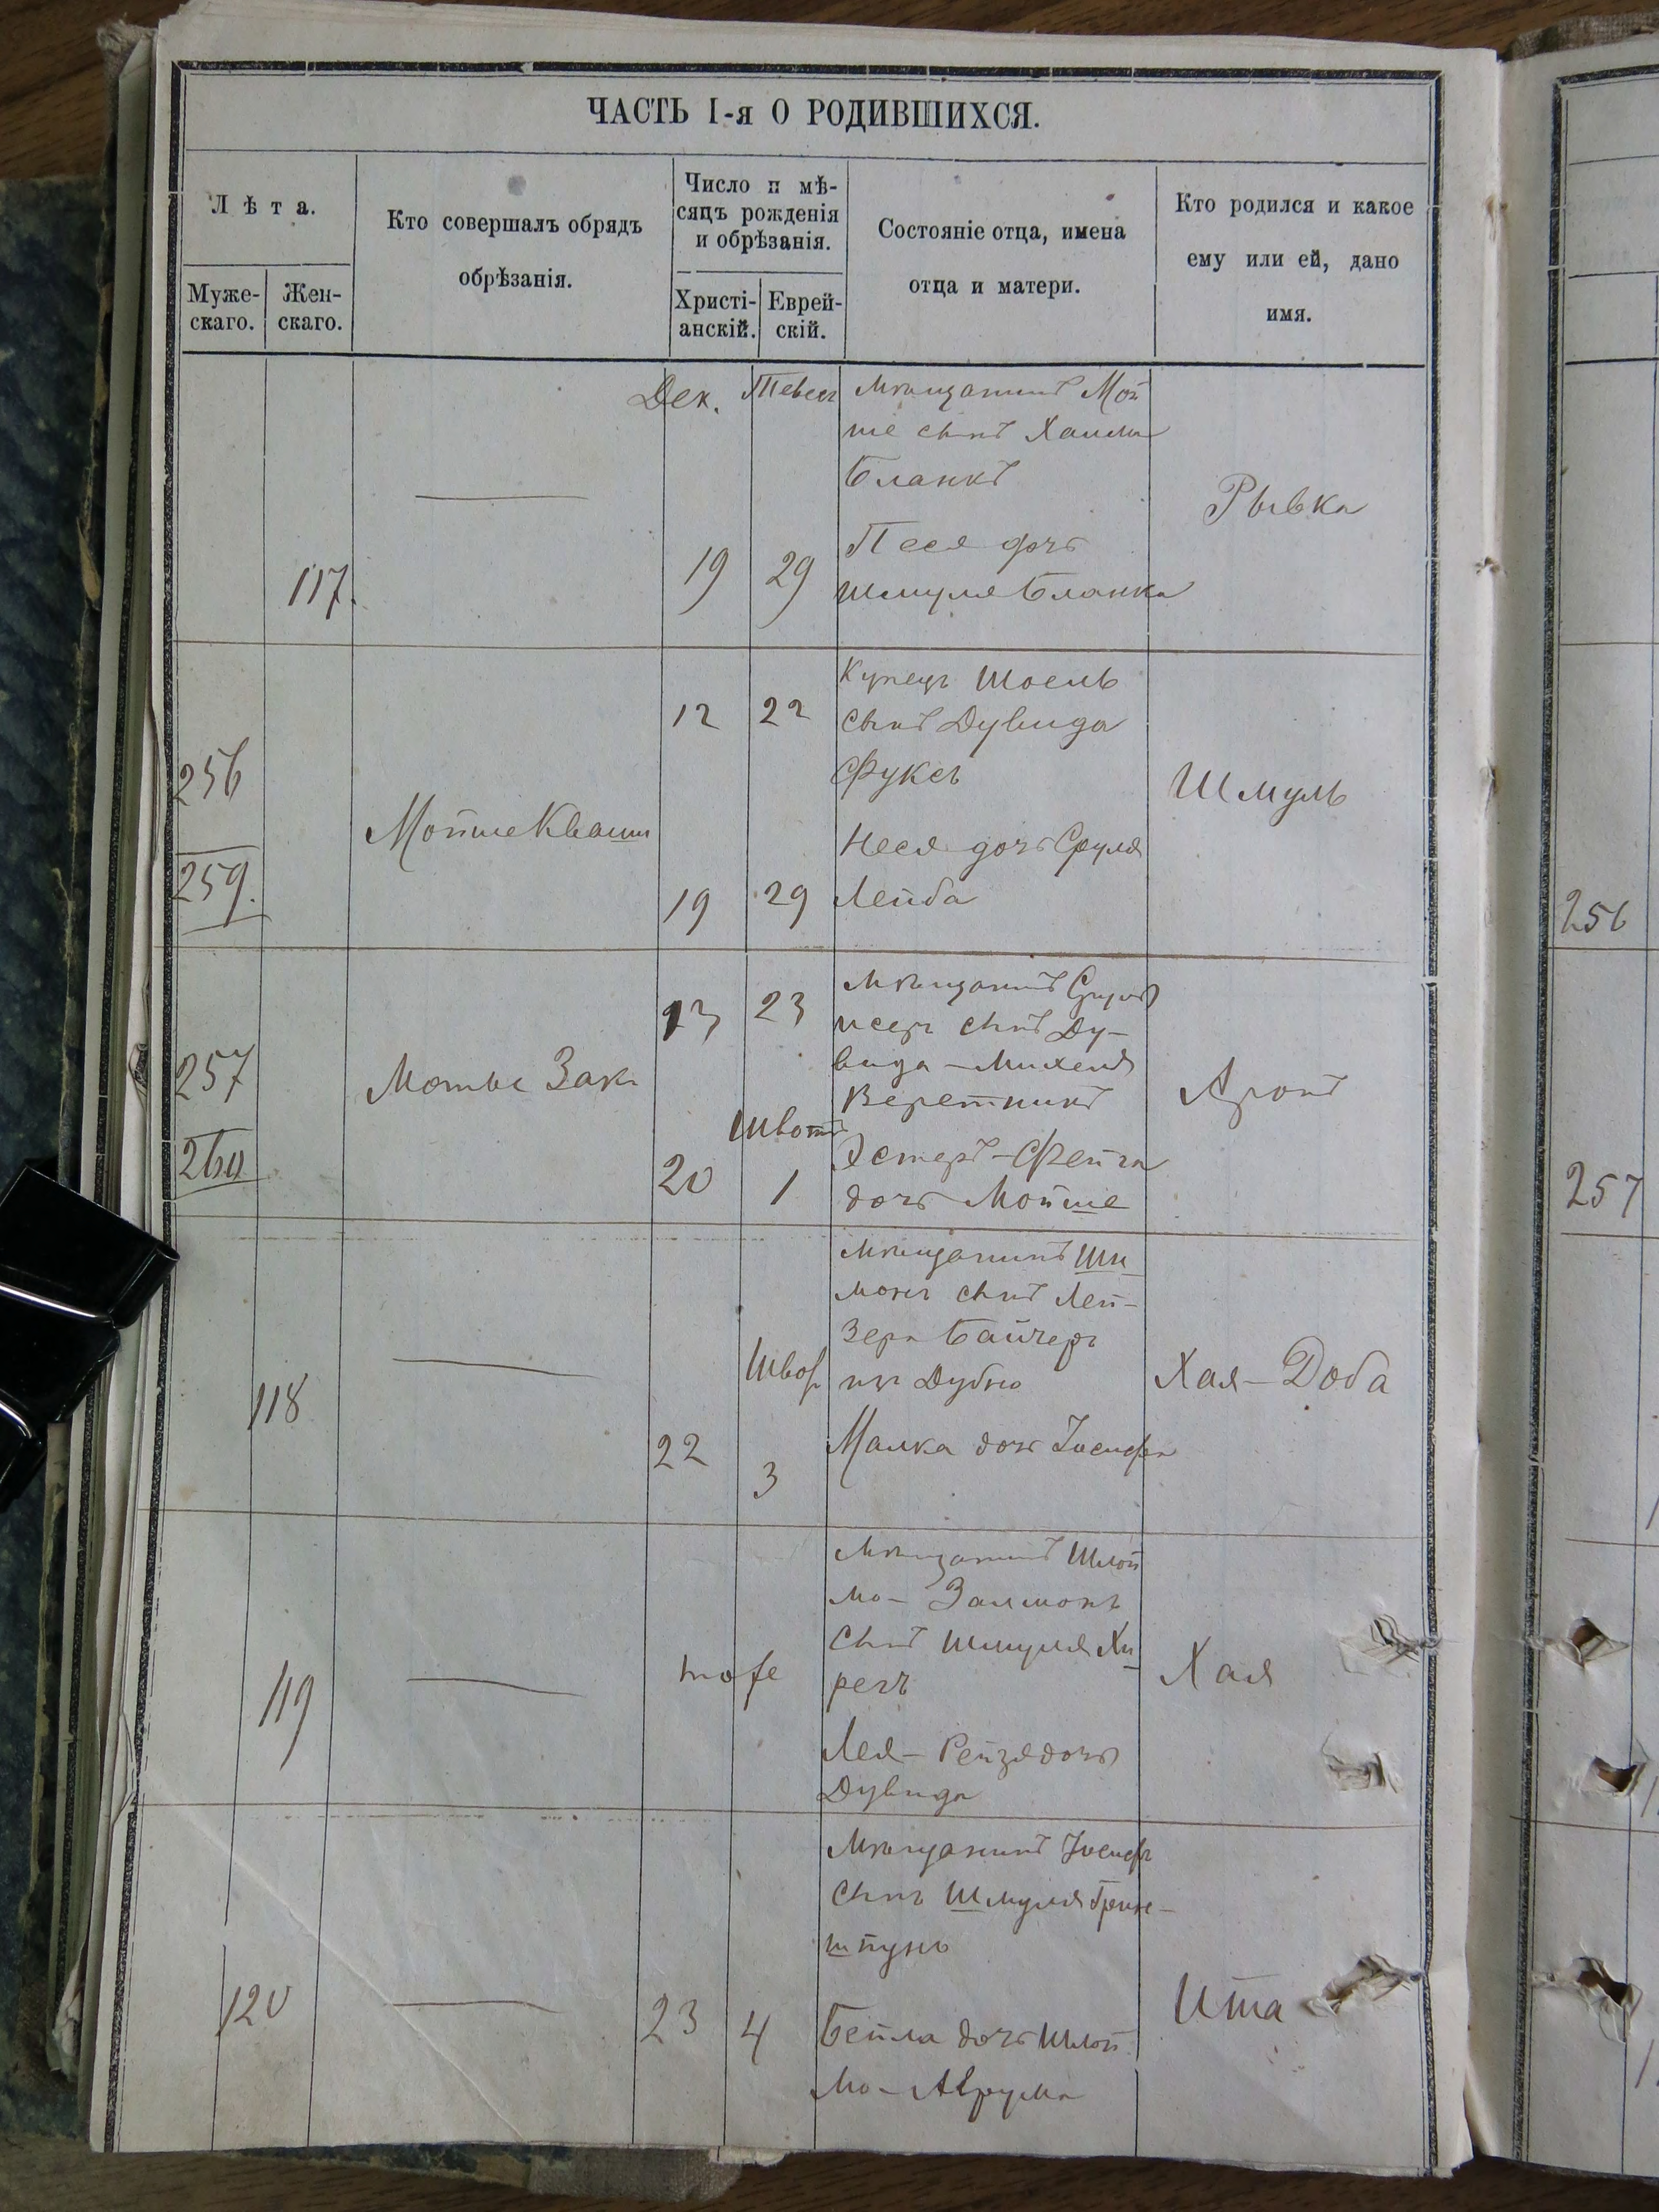 ЧАСТЬ I-я О РОДИВШИХСЯ.
Лѣта.
Муже-
скаго.
Жен-
скаго.
Кто совершалъ обрядъ
обрѣзанія.
Число и мѣ-
сяцъ рожденія
и обрѣзанія.
Христі-
анскій.
Еврей-
скій.
Состояніе отца, имена
отца и матери.
Кто родился и какое
ему или ей, дано
имя.
117.
Дек.
19
Тевес
29
Мѣщанинъ Мой
ше сынъ Хаима
Бланкъ
Песя дочь
Шмуля Бланка
Рывка
256
259.
Мойше Кваша
12
22
19
29
Купецъ Шоель
сынъ Дувида
Фуксъ
Неся дочь Сруля
Лейба
Шмуль
257
260
Мотье Зак
13
23
20
Швотъ
1
Мѣщанинъ Сруль
сынъ Ду-
вида-Михеля
Веретникъ
Эстеръ-Фейга
дочь Мойше
Аронъ
118
22
Швот
3
Мѣщанинъ Ши
монъ сынъ Лей-
зера Байчеръ
изъ Дубно
Малка дочь Іосифа
Хая-Доба
119
тоже
Мѣщанинъ Шлой
мо-Залмонъ
сынъ Шмуля Хи
регъ
Лея-Рейзя дочь
Дувида
Хая
120
23
4
Мѣщанинъ Іосифъ
сынъ Шмуля Грин-
шпунъ
Бейла дочь Шлой
мо-Аврума
Ита
256
257